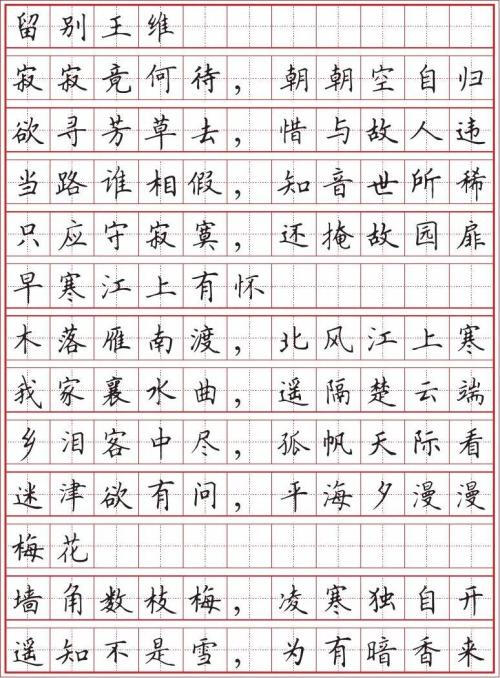 留别王维
寂寂竟何待，朝朝空自归
欲寻芳草去，惜与故人违
当路谁相假，知音世所稀
只应守寂寞，还掩故园扉
早寒江上有怀
木落雁南渡，北风江上寒
我家襄水曲，遥隔楚云端
乡泪客中尽，孤帆天际看
迷津欲有问，平海夕漫漫
梅花
墙角数枝梅，凌寒独自开
遥知不是雪，为有暗香来